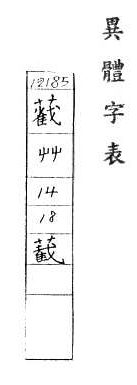 異體字表
12185
艸
14
18